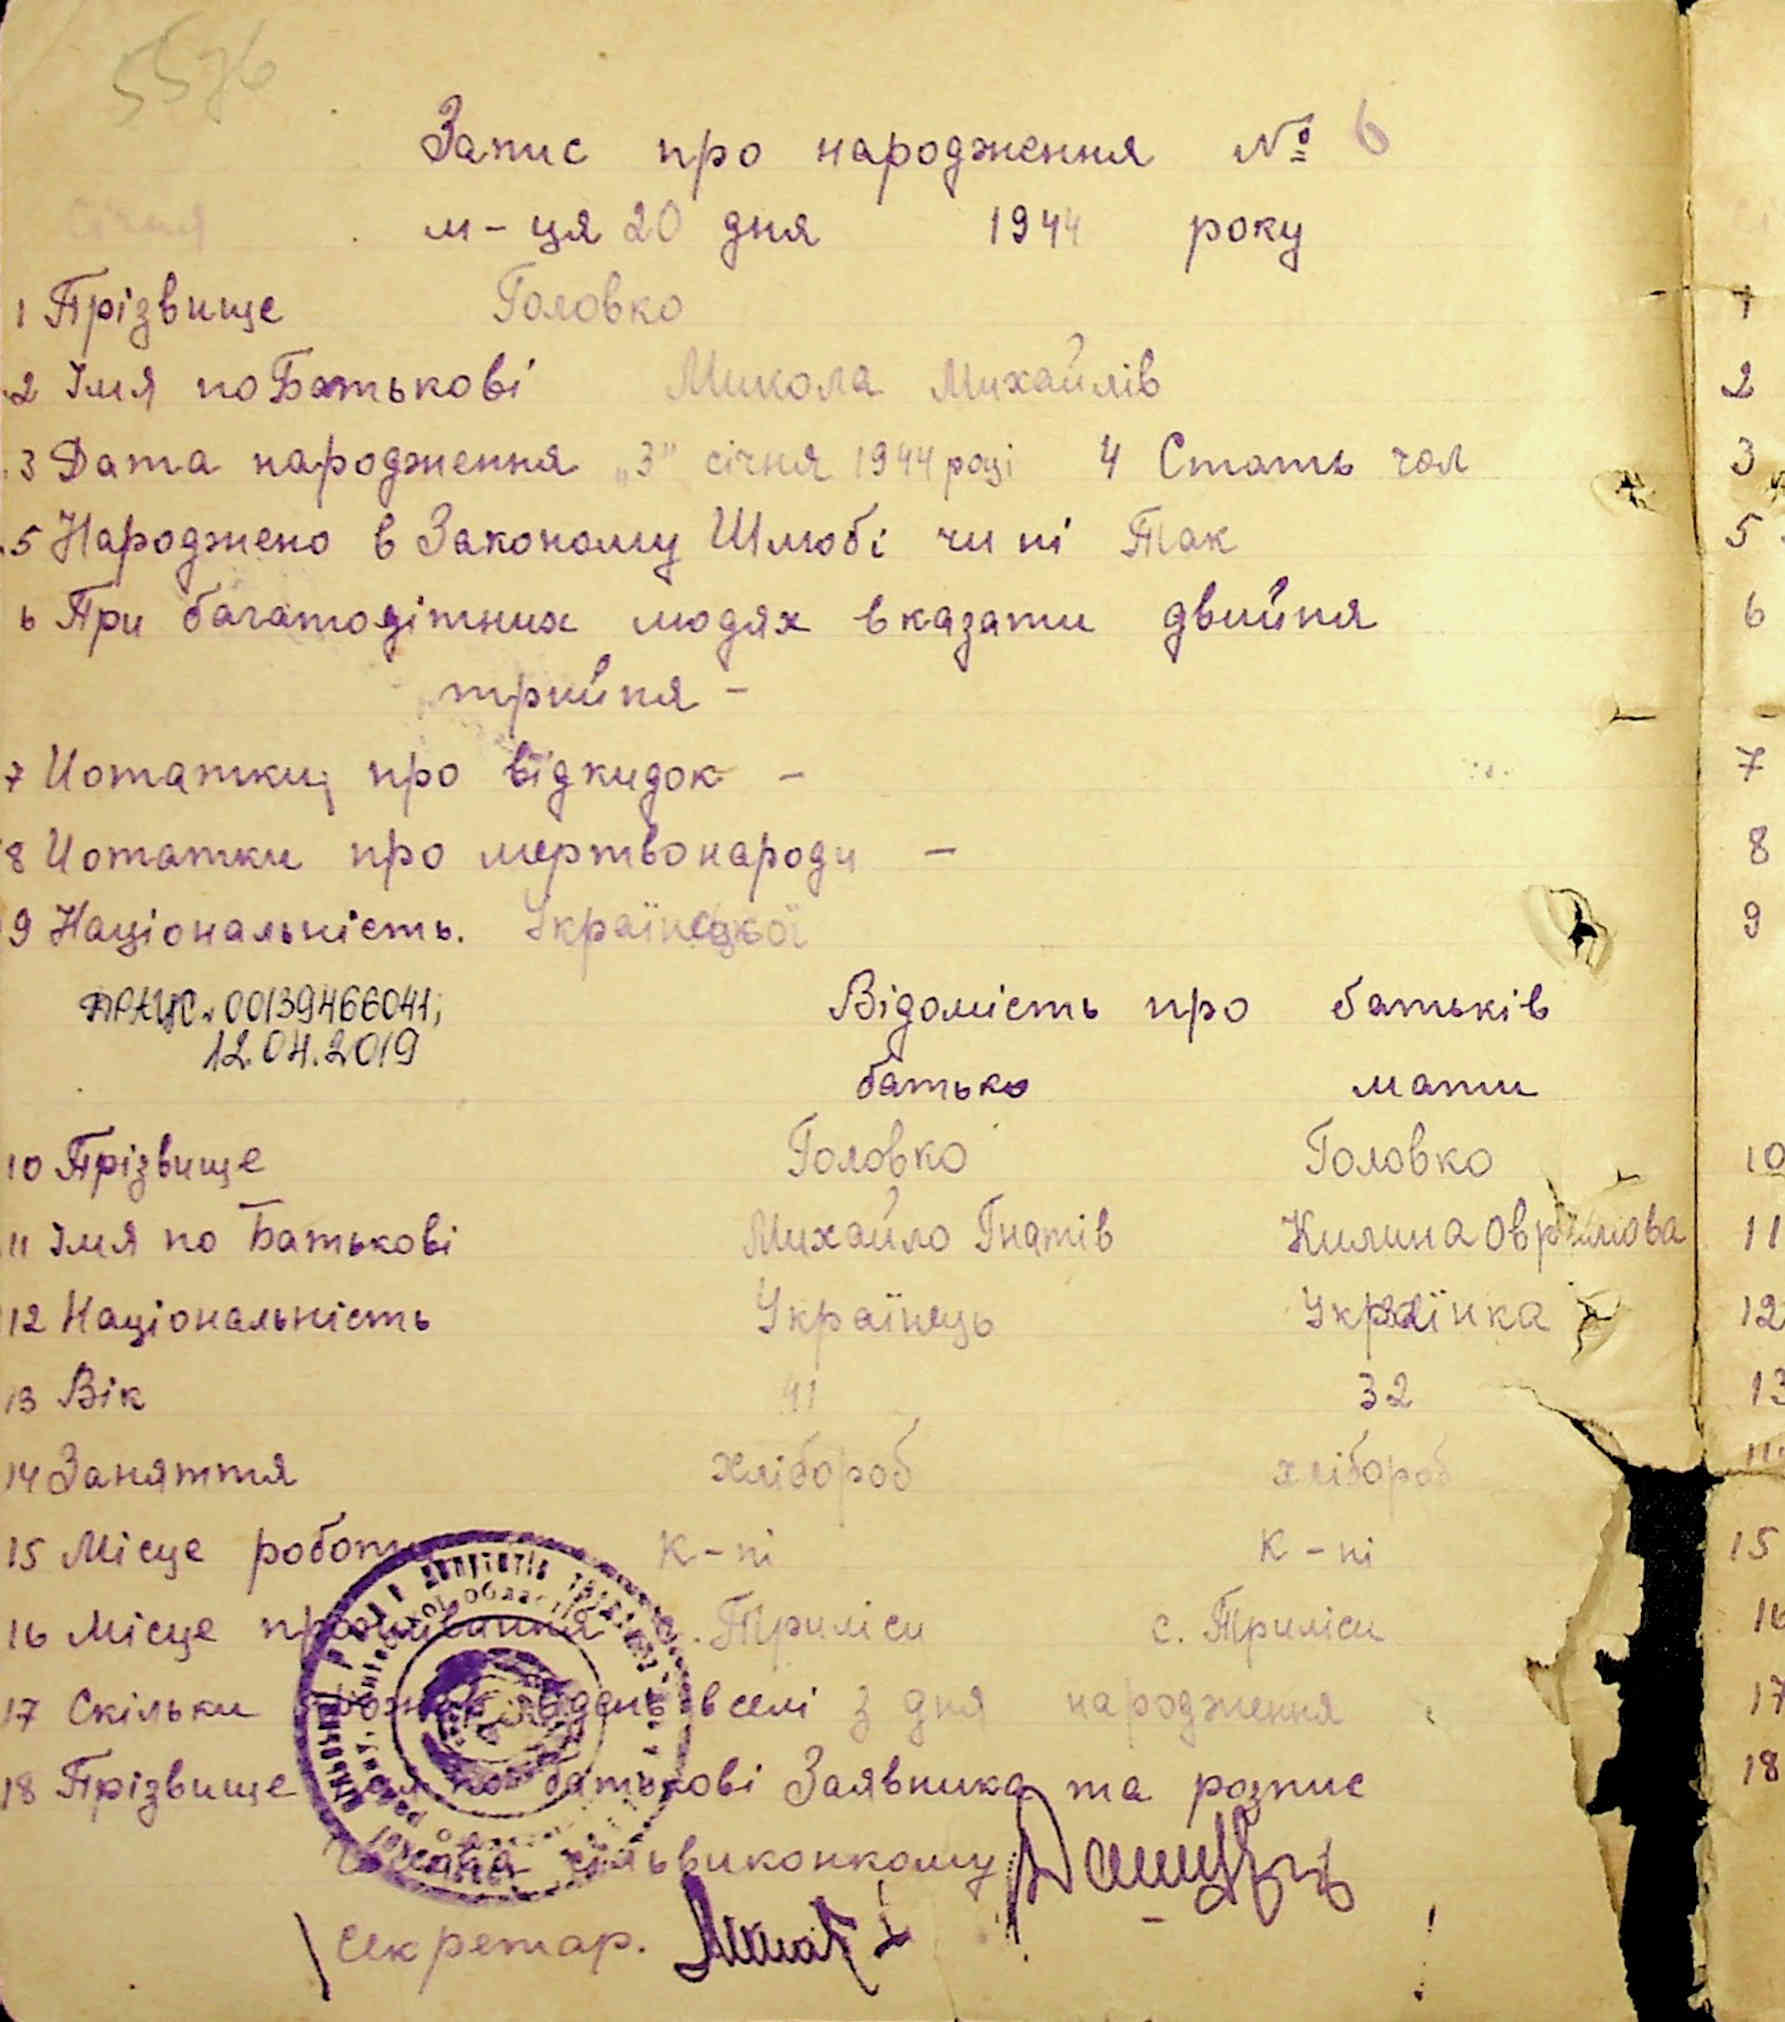 5576
Запис про народження № 6
Січня м-ця 20 дня 1944 року
1 Прізвище Головко
2 Імя по Батькові Микола Михайлів
3 Дата народження „3" січня 1944 році 4 Стать чол
5 Народжено в Законому Шлюбі чи ні Так
6 При багатодітних людях вказати двийня
трийня -
7 Нотатки про відкидок -
8 Нотатки про мертвонароди -
9 Національність. Української
00139466041;
12.04.2019
Відомість про батьків
батько мати
10 Прізвище Головко Головко
11 Імя по Батькові Михайло Гнатів Килина
12 Національність Українець Українка
13 Вік 41 32
14 Заняття хлібороб хлібороб
15 Місце роботи к-пі к-пі
16 Місце проживання с. Триліси с. Триліси
17 Скільки в селі з дня народження
18 Прізвище імя по батькові Заявника та розпис
Голова сільвиконкому
Секретар.
1
2
3
5
6
7
8
9
10
11
12
13
15
16
17
18